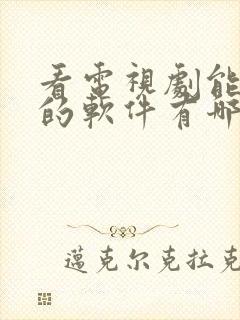 看電視劇能
的軟件有哪
邁克尔克拉克